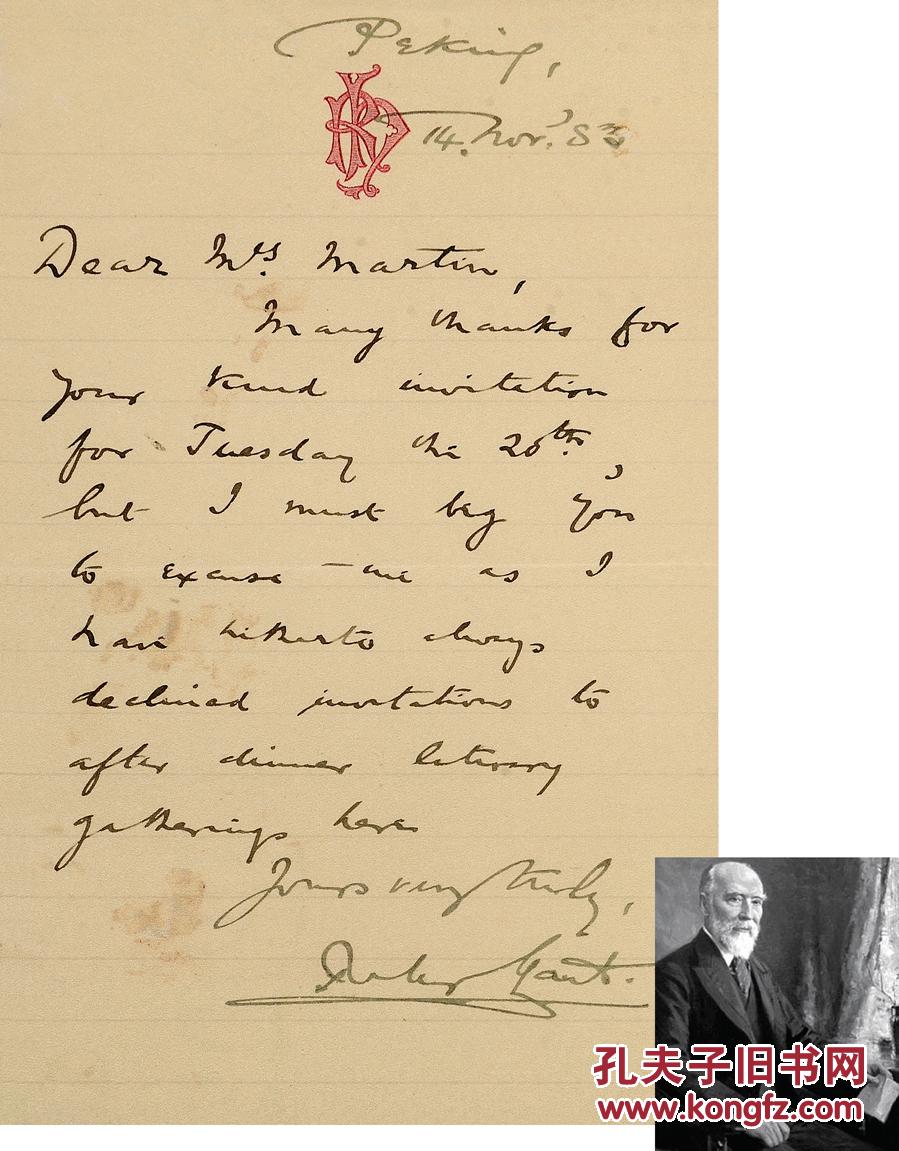 Peking,
14. Nov. '83
Dear Mrs. Martin,
Many thanks for
your kind invitation
for Tuesday the 20th.,
but I must beg you
to excuse me as I
have hitherto always
declined invitations to
after dinner literary
gatherings here
Yours very truly,
Robert Hart.
孔夫子旧书网
www.kongfz.com